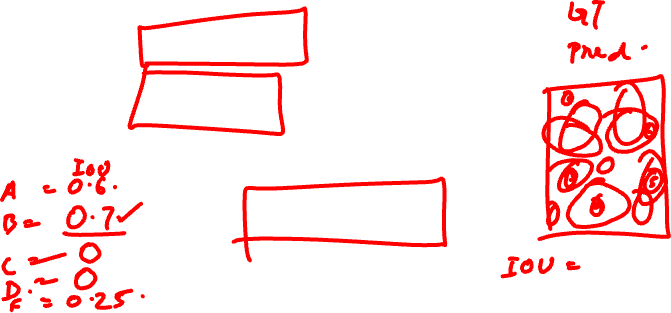 GT
Pred.
IOU
A = 0.6.
B = 0.7 ✓
C — 0
D. — 0
F = 0.25.
IOU =